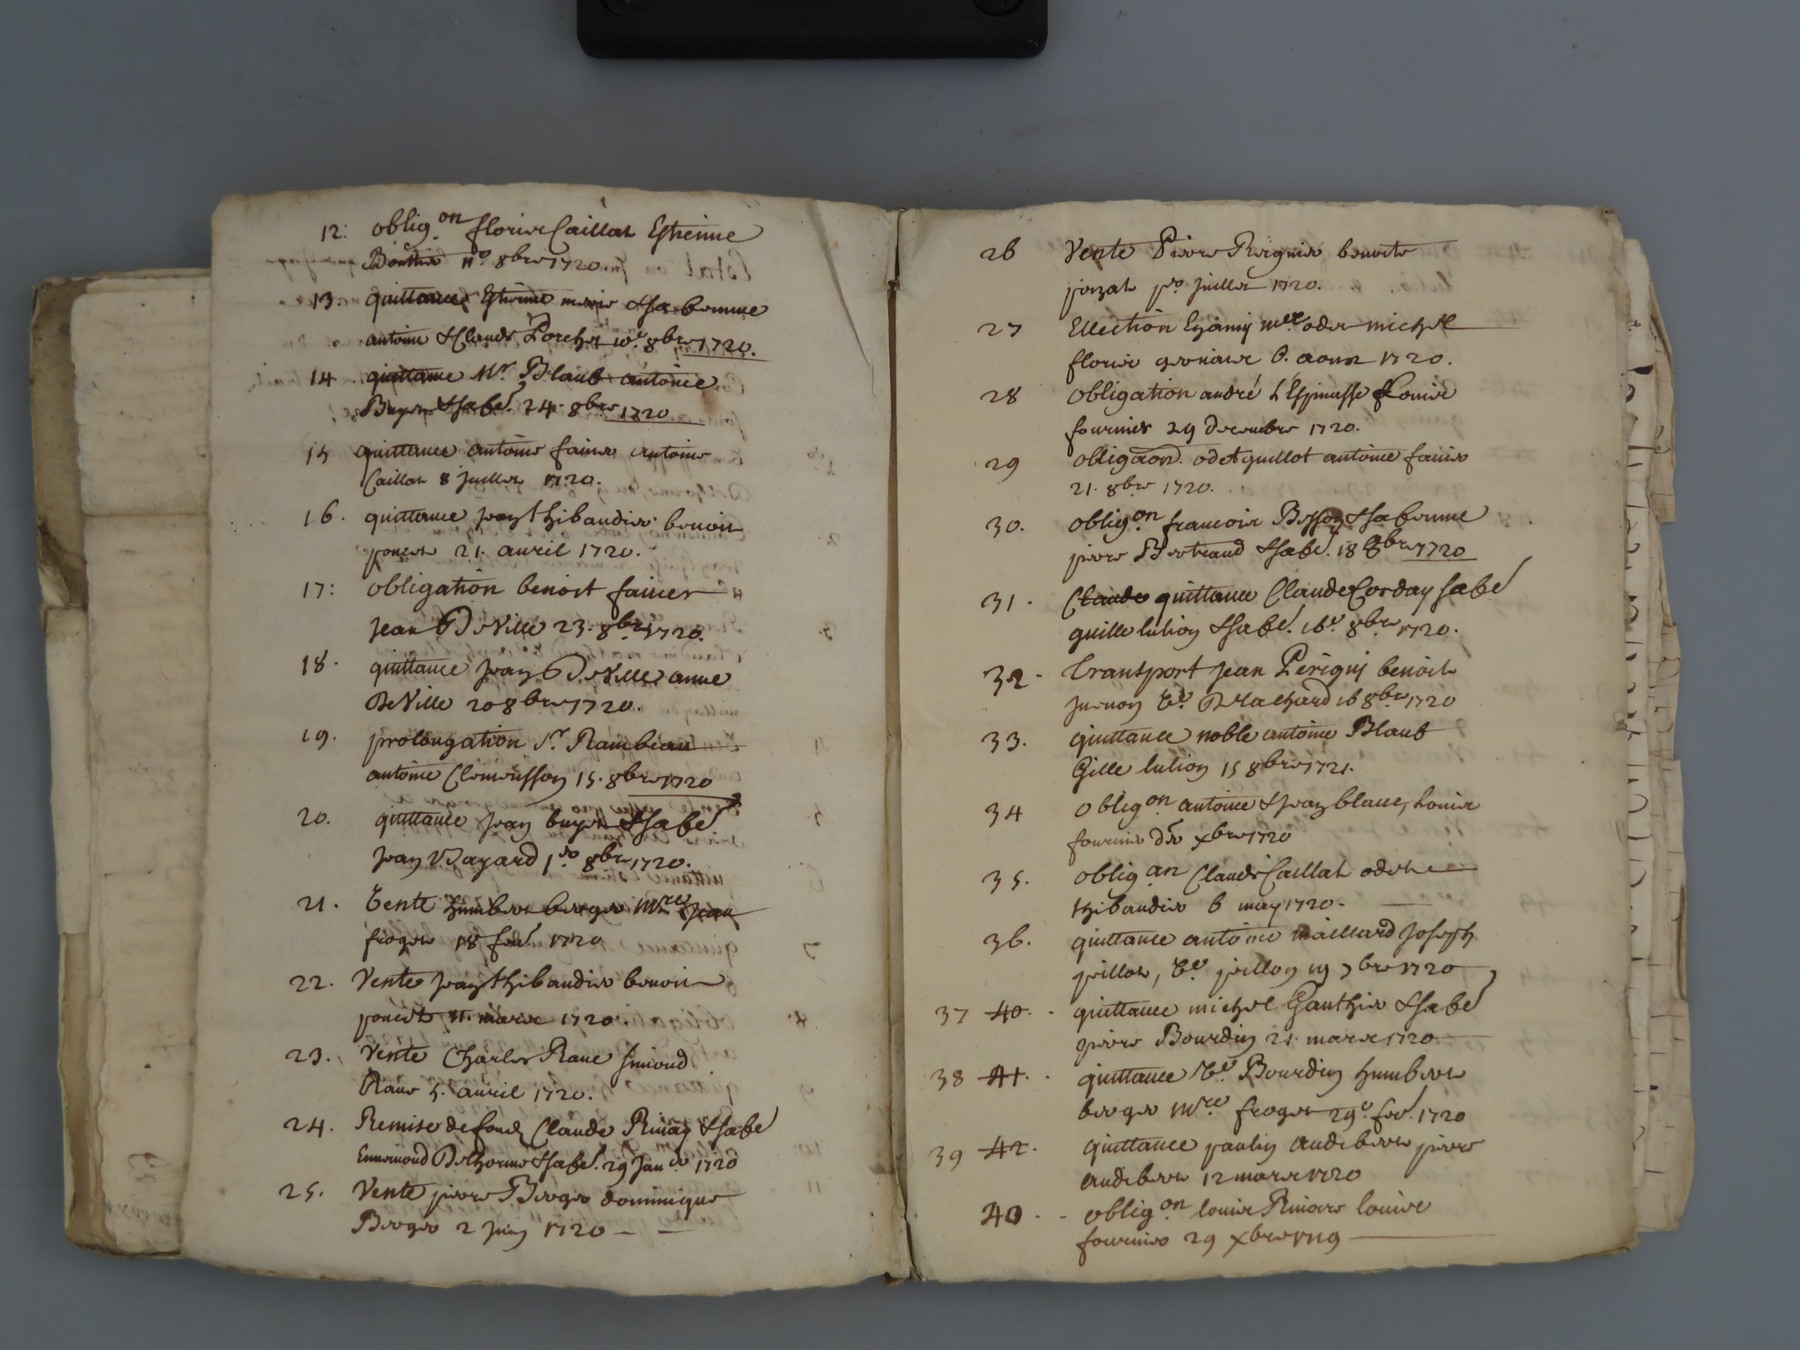 12: oblig.on florise Caillat Estienne
11e 8bre 1720
13. quittance Estienne marie &sa femme
antoine &Claude Porchet 10e 8bre 1720.
14 quittance Mr. Blaub antoine
Buyet &sa fe. 24. 8bre 1720
15 quittance antoine fauier antoine
Caillat 8 Juillet 1720.
16. quittance Jean thibaudier benoit
poncet 21. auril 1720.
17: obligation benoist fauier
Jean DeVille 23. 8bre 1720.
18. quittance Jean DeVille anne
DeVille 20 8bre 1720.
19. prolongation Sr. Rambeau
antoine Clemensson 15. 8bre 1720
20. quittance Jean buyet &sa fe
Jean Bayard 1er 8bre 1720.
21. Vente humbert berger Mre Jean
froget 18 feur. 1720
22. Vente Jean thibaudier benoit
poncet 11. mars 1720
23. Vente Charles Rane simond
Rane 5. auril 1720.
24. Remise de fond Claude Rinay &sa fe
Ennemond Delhorme &sa fe. 29 Janer 1720
25. Vente pierre Berger dominique
Berger 2 Juin 1720
26 Vente Pierre benoite
ponzat pr. Juillet 1720.
27 Ellection En amy mre odet michel
florise 6. aoust 1720.
28 obligation andré L'Espinasse & Louise
fournier 29 decembre 1720.
29 obligaon. odet guillot antoine fauier
21. 8bre 1720.
30. oblig.on francois Besson &sa femme
pierre Bertrand &sa fe. 18 8bre 1720
31. Claude quittance Claude Corday sa fe
guille lution &sa fe. 16e 8bre 1720.
32. Transport Jean Perigni benoit
Junon Ve. Brachard 16 8bre 1720
33. quittance noble antoine Blaub
Gille lution 15 8bre 1721.
34 oblig.on antoine &Jean blanc, Louise
fournier xbre 1720
35. oblig.on Claude Caillat odet
thibaudier 6 may 1720.
36. quittance antoine maillard Joseph
pillot, Ve. pillon 19 7bre 1720
37 40. quittance michel Gauthier &sa fe
pierre Bourdin 21. mars 1720
38 41. quittance Ve. Bourdin humbert
berger Mre. froget 29e feur. 1720
39 42. quittance paulin audebert pierre
audebert 12 mars 1720
40 oblig.on louise Rinard louise
fournier 29 xbre 1719